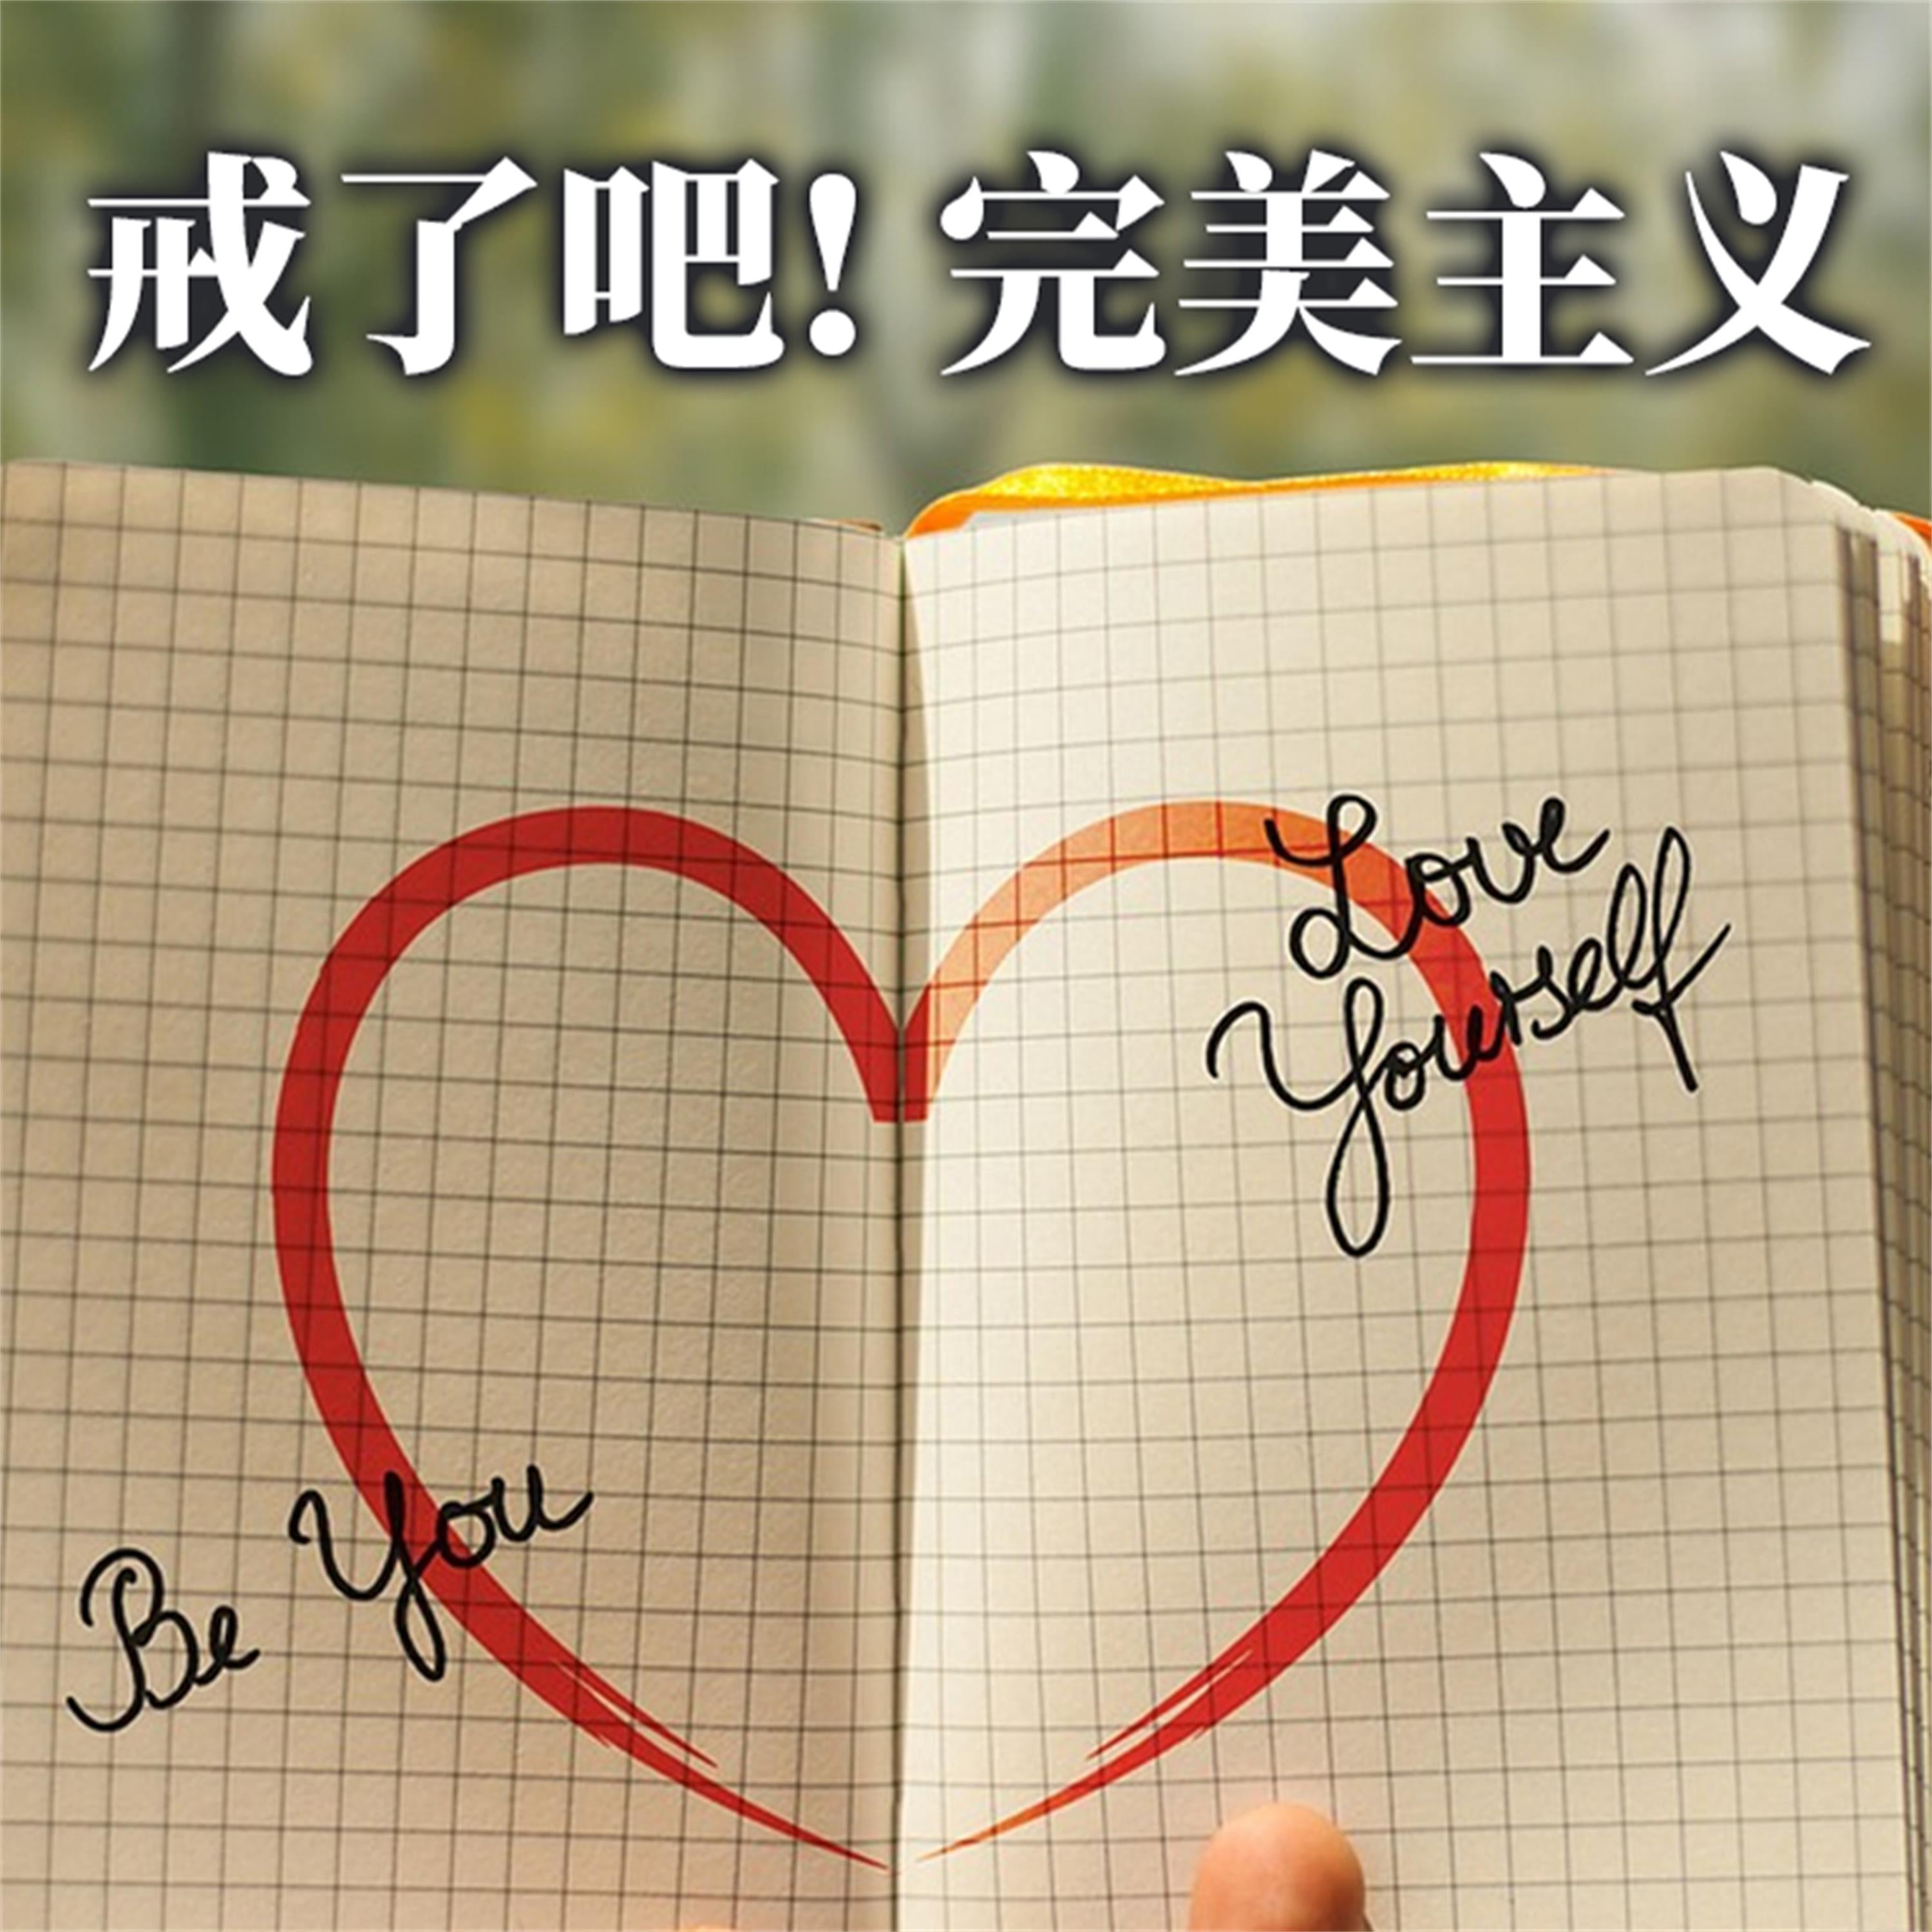 戒了吧！完美主义
Love
Yourself
Be You